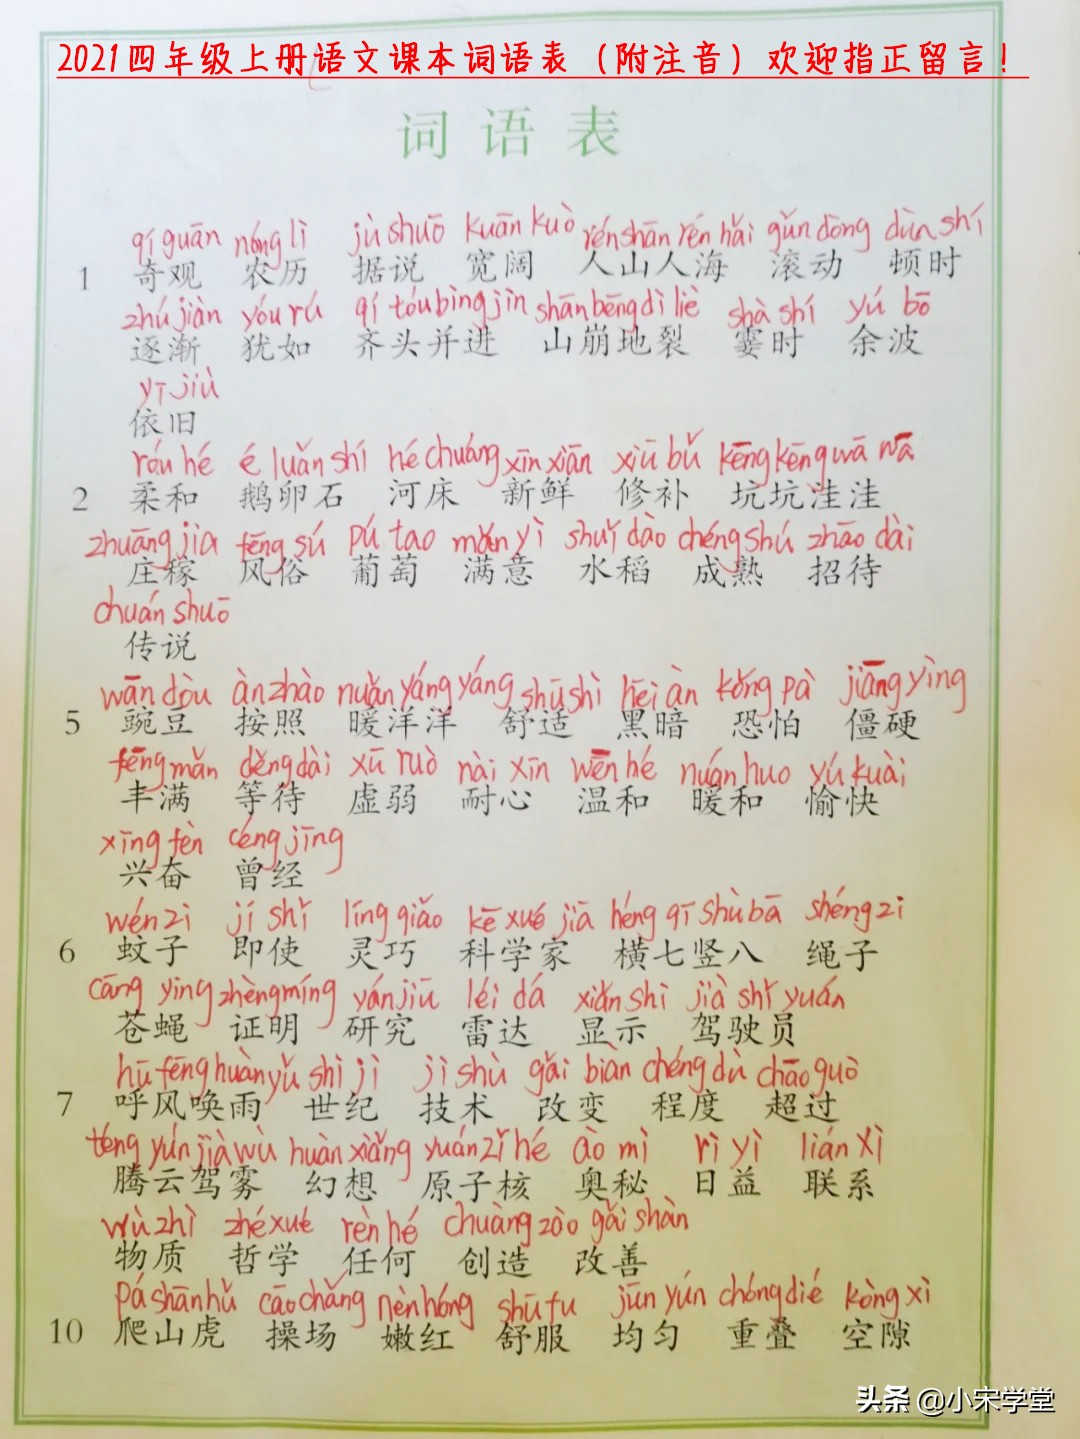 2021四年级上册语文课本词语表（附注音）欢迎指正留言！
词 语 表
qí guān nóng lì jù shuō kuān kuò rén shān rén hǎi gǔn dòng dùn shí
1 奇观 农历 据说 宽阔 人山人海 滚动 顿时
zhú jiàn yóu rú qí tóu bìng jìn shān bēng dì liè shà shí yú bō
逐渐 犹如 齐头并进 山崩地裂 霎时 余波
yī jiù
依旧
róu hé é luǎn shí hé chuáng xīn xiān xiū bǔ kēng kēng wā wā
2 柔和 鹅卵石 河床 新鲜 修补 坑坑洼洼
zhuāng jia fēng sú pú tao mǎn yì shuǐ dào chéng shú zhāo dài
庄稼 风俗 葡萄 满意 水稻 成熟 招待
chuán shuō
传说
wān dòu àn zhào nuǎn yáng yáng shū shì hēi àn kǒng pà jiāng yìng
5 豌豆 按照 暖洋洋 舒适 黑暗 恐怕 僵硬
fēng mǎn děng dài xū ruò nài xīn wēn hé nuán huo yú kuài
丰满 等待 虚弱 耐心 温和 暖和 愉快
xīng fèn céng jīng
兴奋 曾经
wén zi jí shǐ líng qiǎo kē xué jiā héng qī shù bā shéng zi
6 蚊子 即使 灵巧 科学家 横七竖八 绳子
cāng ying zhèng míng yán jiū léi dá xiǎn shì jià shǐ yuán
苍蝇 证明 研究 雷达 显示 驾驶员
hū fēng huàn yǔ shì jì jì shù gǎi biàn chéng dù chāo guò
7 呼风唤雨 世纪 技术 改变 程度 超过
téng yún jià wù huàn xiǎng yuán zǐ hé ào mì rì yì lián xì
腾云驾雾 幻想 原子核 奥秘 日益 联系
wù zhì zhé xué rèn hé chuàng zào gǎi shàn
物质 哲学 任何 创造 改善
pá shān hǔ cāo chǎng nèn hóng shū fu jūn yún chóng dié kòng xì
10 爬山虎 操场 嫩红 舒服 均匀 重叠 空隙
头条 @小宋学堂